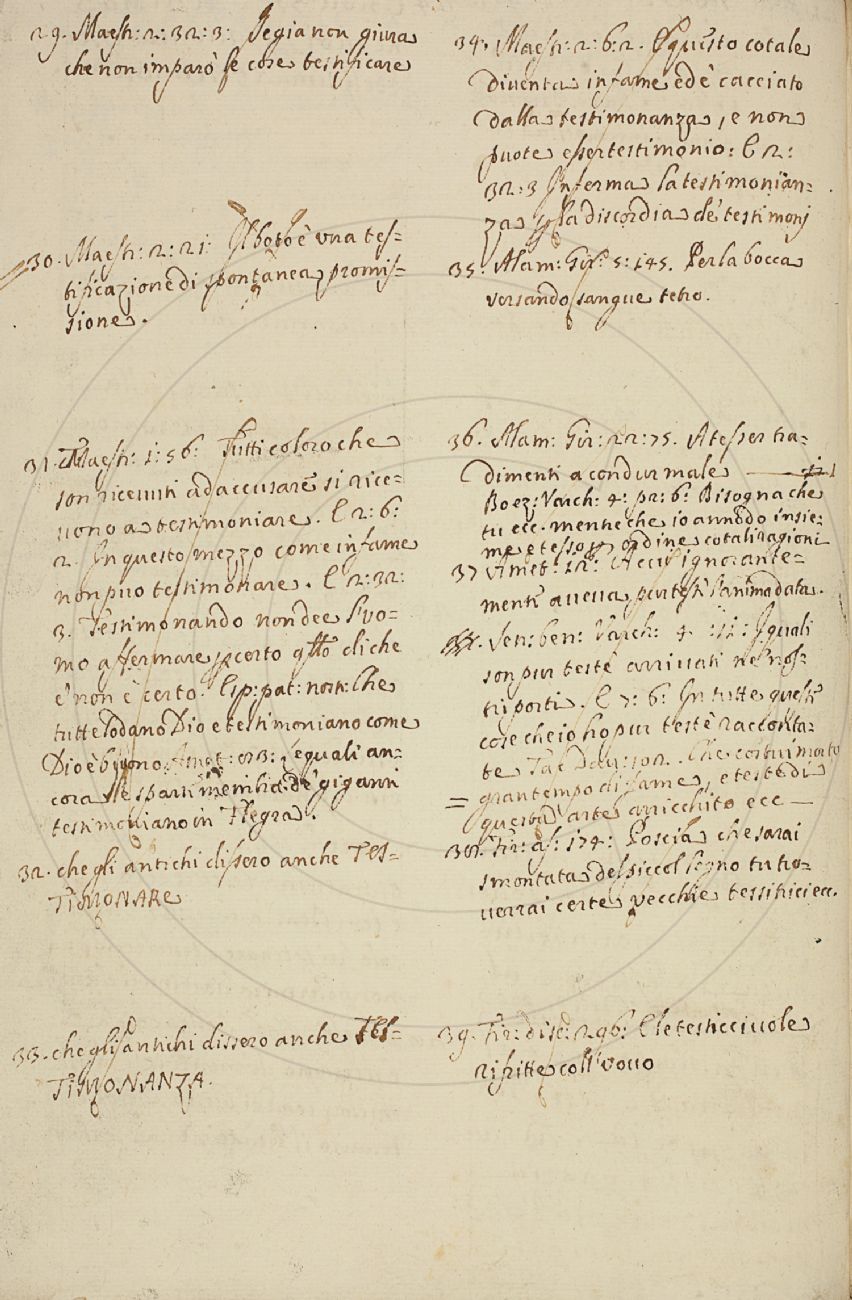 29. Maestr: 2: 32: 3: Se gia non giura
che non imparò le cose testificare
30. Maestr: 2: 21: Il boto è una tes=
tificazione di spontanea promis=
sione.
31. Maestr: 1: 56: Tutti coloro che
son ricevuti ad accusare si rice=
vono a testimoniare. E 2: 6:
2. In questo mezzo come infame
non può testimoniare. E 2: 32:
3. Testimonando non dee l'uo=
mo affermare p certo qllo di che
e' non è certo. Esp: pat: nost: Che
tutte lodano Dio e testimoniano come
Dio è buono. Amet: 93: Le quali an=
cora le sparte membra de' giganti
testimoniano in Flegra.
32. che gli antichi dissero anche TES=
TIMONARE
33. che gli antichi dissero anche TES=
TIMONANZA.
34. Maestr: 2: 6: 2. E questo cotale
diventa infame ed è cacciato
dalla testimonanza, e non
puote esser testimonio: E 2:
32: 3 Inferma la testimonian=
za p la discordia de' testimonj
35. Alam: Gir: 5: 145. Per la bocca
versando sangue tetro.
36. Alam: Gir: 22: 75. A tesser tra=
dimenti a condur male
Boez: Varch: 4: pr: 6: Bisogna che
tu ecc. mentre che io annodo insie=
me e tesso p ordine cotali ragioni
37 Amet: 12: A cui ignorante=
mente aveva
Sen: ben: Varch: 4: 11: I quali
son pur testè arrivati ne' nos=
tri porti. E 7: 6: In tutte queste
cose che io ho pur testè racconta=
te Tac: Dav: 102. Che costui morto
gran tempo di fame, e testè di
questa arte arricchito ecc
38. Fir: As: 174: Poscia che sarai
smontata del piccol legno tu tro=
verrai certe vecchie tessitrici ecc.
39. Fir: disc: 296: E le testicciuole
rifritte coll'uovo